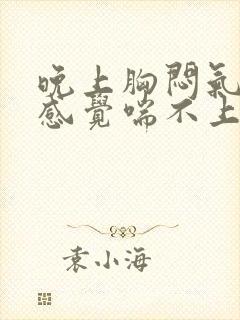 晚上胸悶氣
感覺喘不上
袁小海